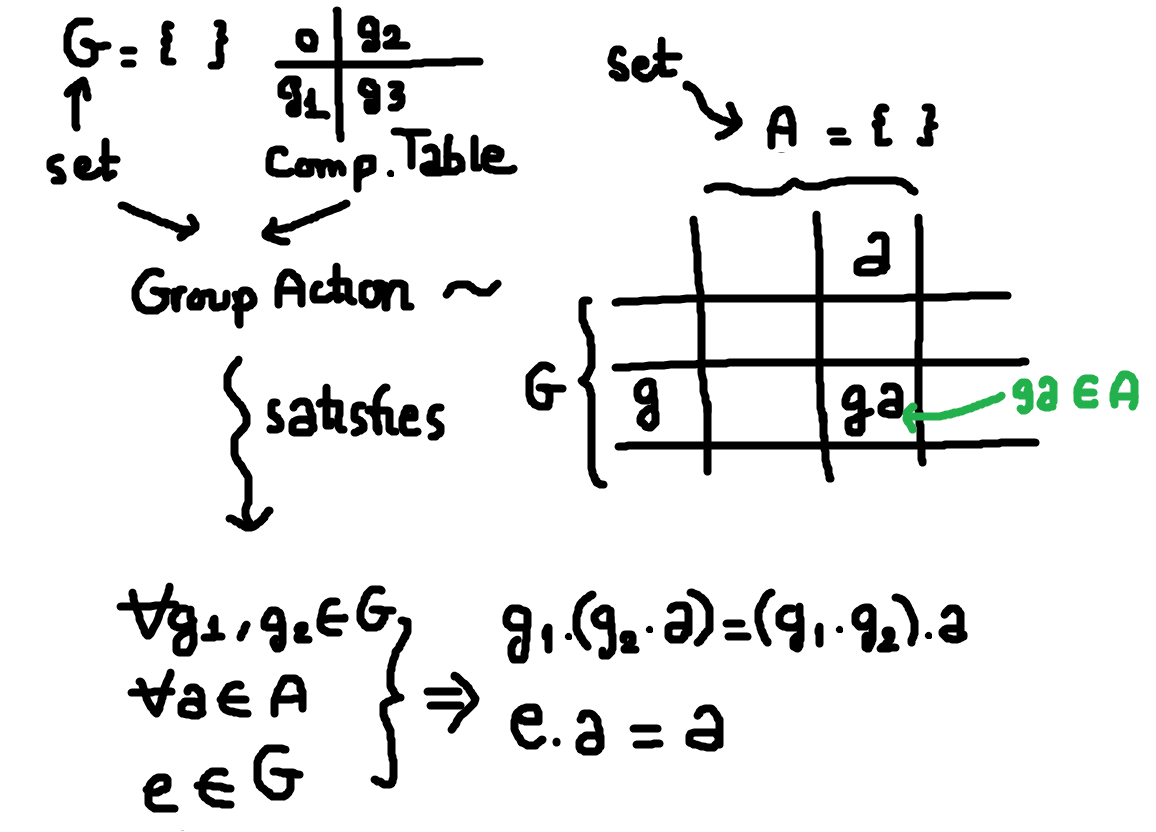 G = { }
o g2
g1 g3
set
Comp. Table
Group Action ~
satisfies
set
A = { }
a
G
g ga
ga ∈ A
∀g1, g2 ∈ G
∀a ∈ A
e ∈ G
⇒
g1.(g2.a)=(g1.g2).a
e.a = a